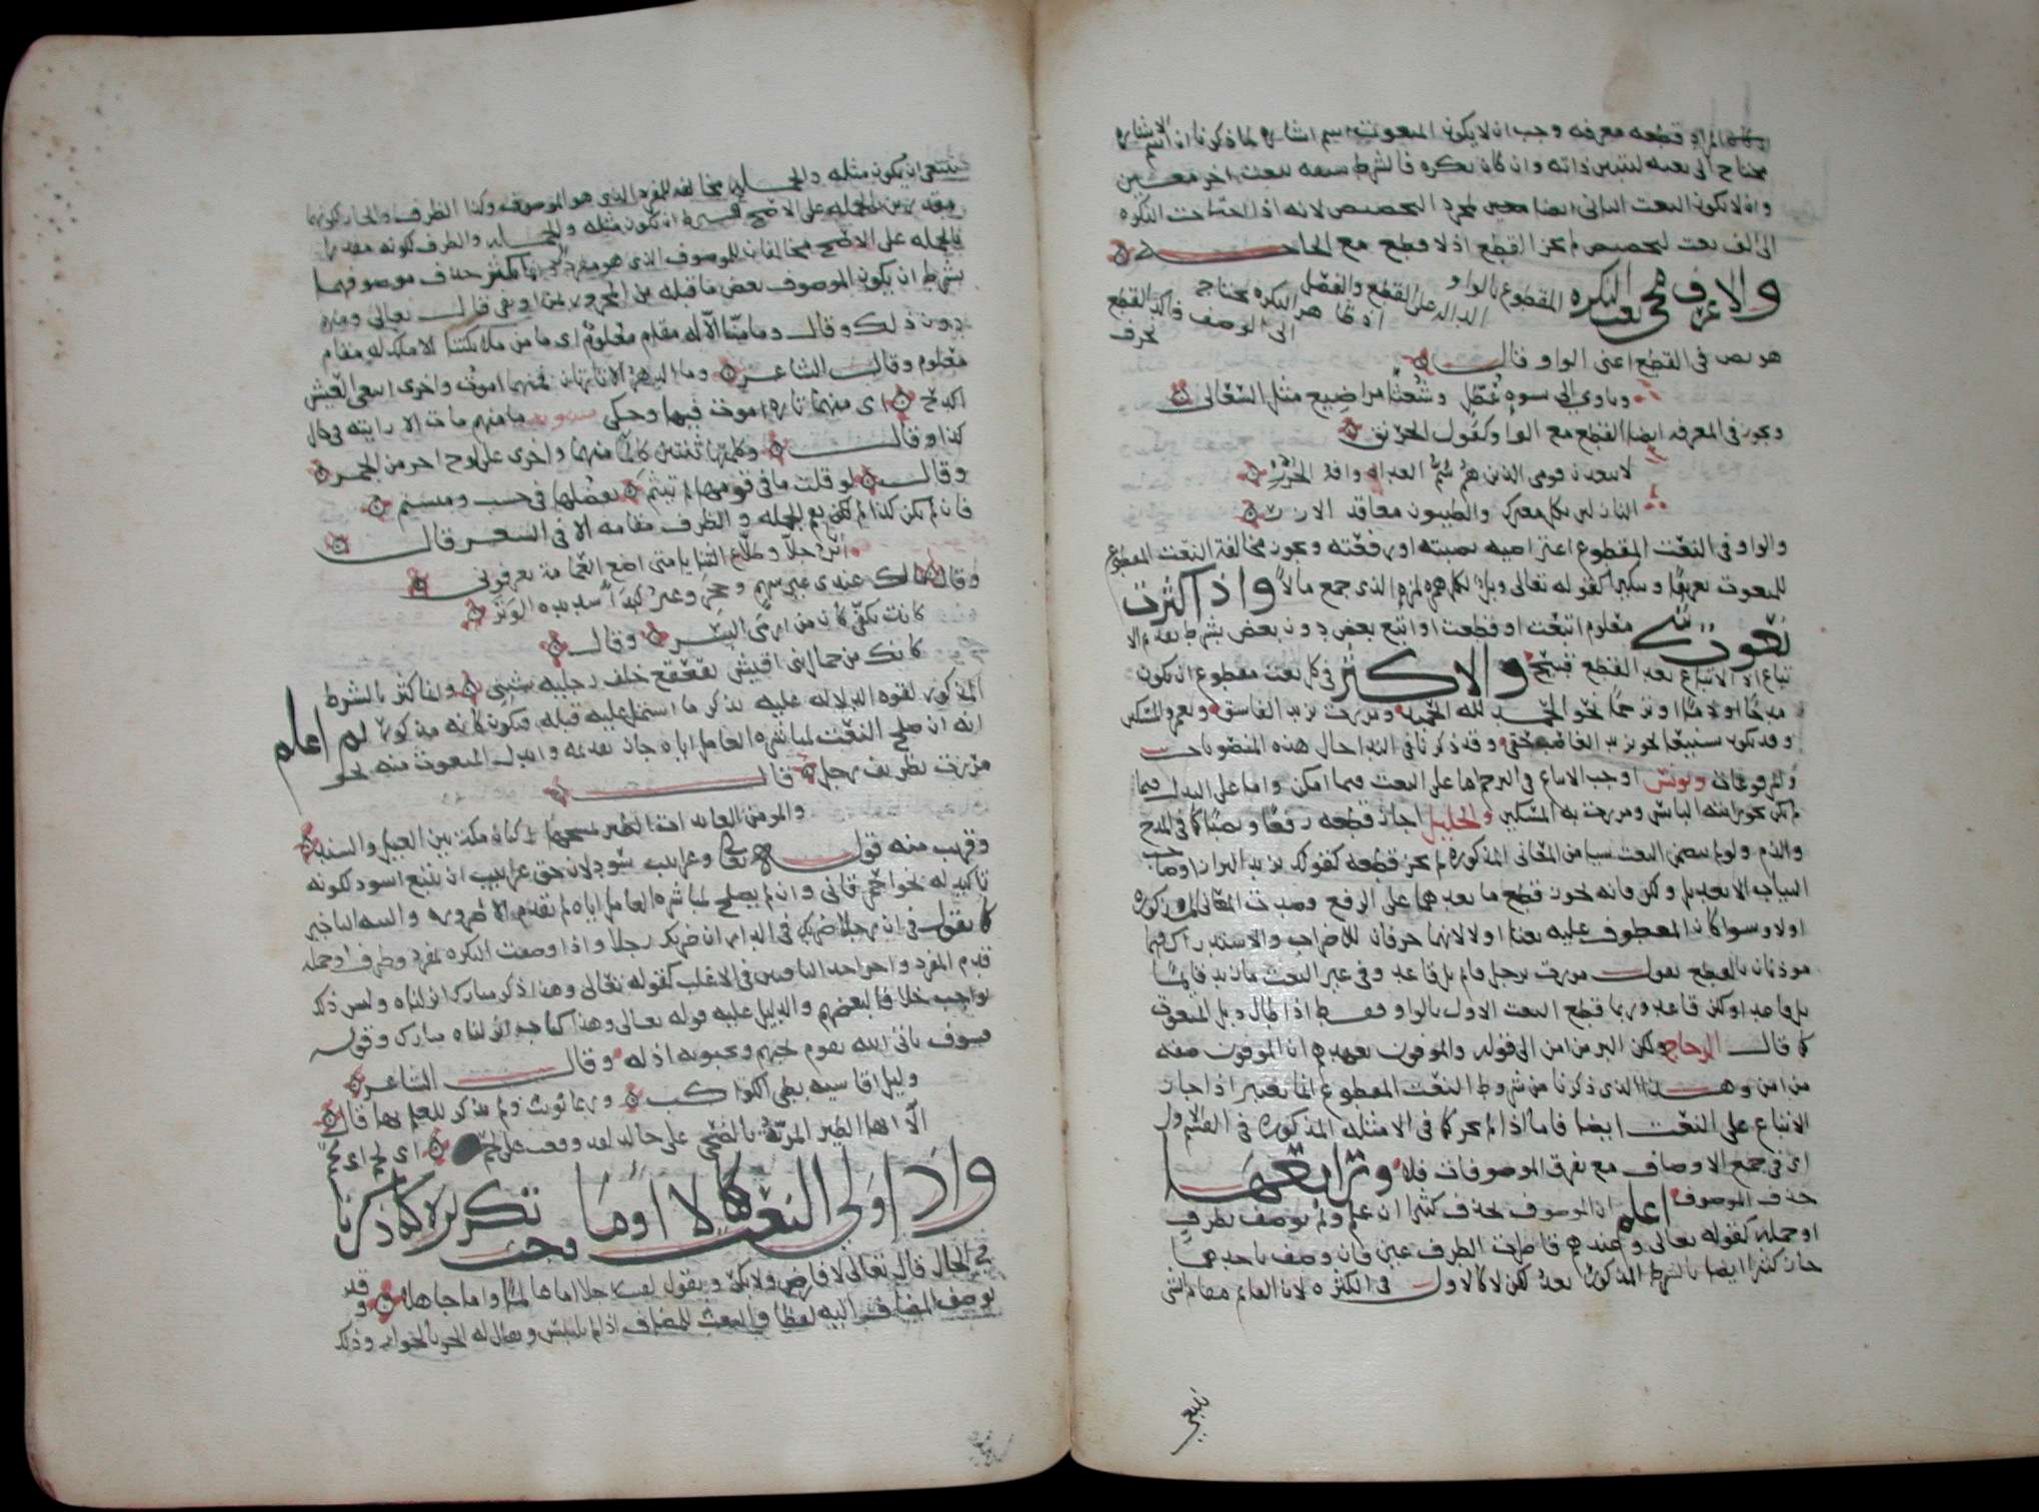 قطعه معرفه وجب ان لا يكون المنعوت اسم اشاره لما ذكرنا ان اسم الاشاره
محتاج الى نعته لتبيين ذاته وان كان نكره فالشرط سبقه بنعت اخر مبين
وان لا يكون النعت الثاني ايضا لمجرد التخصيص لانه اذا احتاجت النكره
الى الف نعت لتخصيص لم يجز القطع اذ لا قطع مع الحاجه
والاعرف مجي نعت النكره المقطوع بالواو الداله على القطع والفصل اذ ظاهر النكره محتاج الى الوصف فاكد القطع بحرف
هو نص في القطع اعني الواو قال
وياوي الى نسوه عطل وشعثا مراضيع مثل السعالي
ويجوز في المعرفه ايضا القطع مع الواو كقول الخرنق
لا يبعدن قومي الذين هم سم العداه وافه الجزر
النازلين بكل معترك والطيبون معاقد الازر
والواو في النعت المقطوع اعتراضيه نصبته او رفعته ويجوز مخالفة النعت المقطوع
للمنعوت تعريفا وتنكيرا كقوله تعالى ويل لكل همزه لمزه الذي جمع مالا واذا كثرت
نعوت شي معلوم اتبعت او قطعت او اتبع بعض دون بعض بشرط تقدم الا
تباع اذ الاتباع بعد القطع قبيح والاكثر في كل نعت مقطوع ان يكون
مدحا او ذما او ترحما نحو الحمد لله الحميد ومررت بزيد الفاسق وبعمرو المسكين
وقد يكون تشنيعا نحو بزيد الغاصب حقي وقد ذكرنا في الندا حال هذه المنصوبات
والمرفوعات ويونس اوجب الاتباع في الترحم اما على النعت فيما امكن واما على البدل فيما
لم يكن نحو رايته البائس ومررت به المسكين والخليل اجاز قطعه رفعا ونصبا كما في المدح
والذم ولو لم يتضمن النعت شيا من المعاني المذكوره لم يجز قطعه كقولك بزيد البزاز او صاحب
الثياب الا بعد بل ولكن فانه يجوز قطع ما بعدهما على الرفع وجدت المعاني المذكوره
اولا وسوا كان المعطوف عليه نعتا اولا لانهما حرفان للاضراب والاستدراك فهما
موذنان بالقطع تقول مررت برجل قائم بل قاعد وفي غير النعت ما زيد قائما
بل قاعد او لكن قاعد وربما قطع النعت الاول بالواو فقط اذا طال ذيل المنعوت
كما قال الزجاج ولكن البر من امن الى قوله والموفون بعهدهم ان الموفون صفه
من امن وهذا الذي ذكرنا من شروط النعت المقطوع انما تعتبر اذا جاز
الاتباع على النعت ايضا فاما اذا لم يجز كما في الامثله المذكوره في القسم الاول
اي في جمع الاوصاف مع تفرق الموصوفات فلا ورابعها
حذف الموصوف اعلم ان الموصوف يحذف كثيرا ان علم ولم يوصف بظرف
او جمله كقوله تعالى وعندهم قاصرات الطرف عين فان وصف باحدهما
جاز كثيرا ايضا بالشرط المذكور بعد لكن لا كالاول في الكثره لان القائم مقام الشي
ينبغي
ينبغي ان يكون مثله والجمله مخالفه للمفرد الذي هو الموصوف وكذا الظرف والجار لكونهما
مقدرين بالجمله على الاصح
بشرط ان يكون الموصوف بعض ما قبله من المجرور بمن او في قال تعالى ومنهم
دون ذلك وقال وما منا الا له مقام معلوم اي ما من ملائكتنا الا ملك له مقام
معلوم وقال الشاعر وما الدهر الا تارتان فمنهما اموت واخرى ابتغي العيش
اكدح اي منهما تاره اموت فيها وحكى سيبويه ما منهم مات الا رايته في حال
كذا وقال وكلمتها ثنتين كالما منهما واخرى على لوح احر من الجمر
وقال لو قلت ما في قومها لم تيثم يفضلها في حسب وميسم
فان لم يكن كذا لم تقم الجمله والظرف مقامه الا في الشعر قال
انا ابن جلا وطلاع الثنايا متى اضع العمامة تعرفوني
وقال ما لك عندي غير سهم وحجر وغير كبدا شديده الوتر
كانت بكفي كان من ارمى البشر وقال
كانك من جمال بني اقيش يقعقع خلف رجليه بشن وانما كثر بالشرط
المذكور لقوه الدلاله عليه بذكر ما اشتمل عليه قبله فيكون كانه مذكور ثم اعلم
انه ان صلح النعت لمباشره العامل اياه جاز تقديمه وابدال المنعوت منه نحو
مررت بظريف رجل قال
والمومن العائذات الطير تمسحها ركبان مكة بين الغيل والسند
وقريب منه قوله تعالى وغرابيب سود لان حق غرابيب ان يتبع اسود لكونه
تاكيدا له نحو احمر قاني وان لم يصلح لمباشره العامل اياه لم يقدم الا ضروره والنيه التاخير
كما تقول في ان رجلا ضربك في الدار ان ضربك رجلا واذا وصفت النكره بمفرد وظرف او جمله
قدم المفرد واخر احد الباقيين في الاغلب كقوله تعالى وهذا ذكر مبارك انزلناه وليس ذلك
بواجب خلافا لبعضهم والدليل عليه قوله تعالى وهذا كتاب انزلناه مبارك وقوله
فسوف ياتي الله بقوم يحبهم ويحبونه اذله وقال الشاعر
وليل اقاسيه بطي الكواكب وربما نويت ولم تذكر للعلم بها قال
الا ايها الطير المربة بالضحى على خالد لقد وقعت على لحم اي لحم اي لحم
واذا ولى النعت لا او اما وجب تكريرهما كما ذكرنا
في الحال قال تعالى لا فارض ولا بكر وتقول لقيت رجلا اما عالما واما جاهلا وقد
يوصف المضاف اليه لفظا والنعت للمضاف اذا لم يلتبس ويقال له الجر بالجوار وذلك